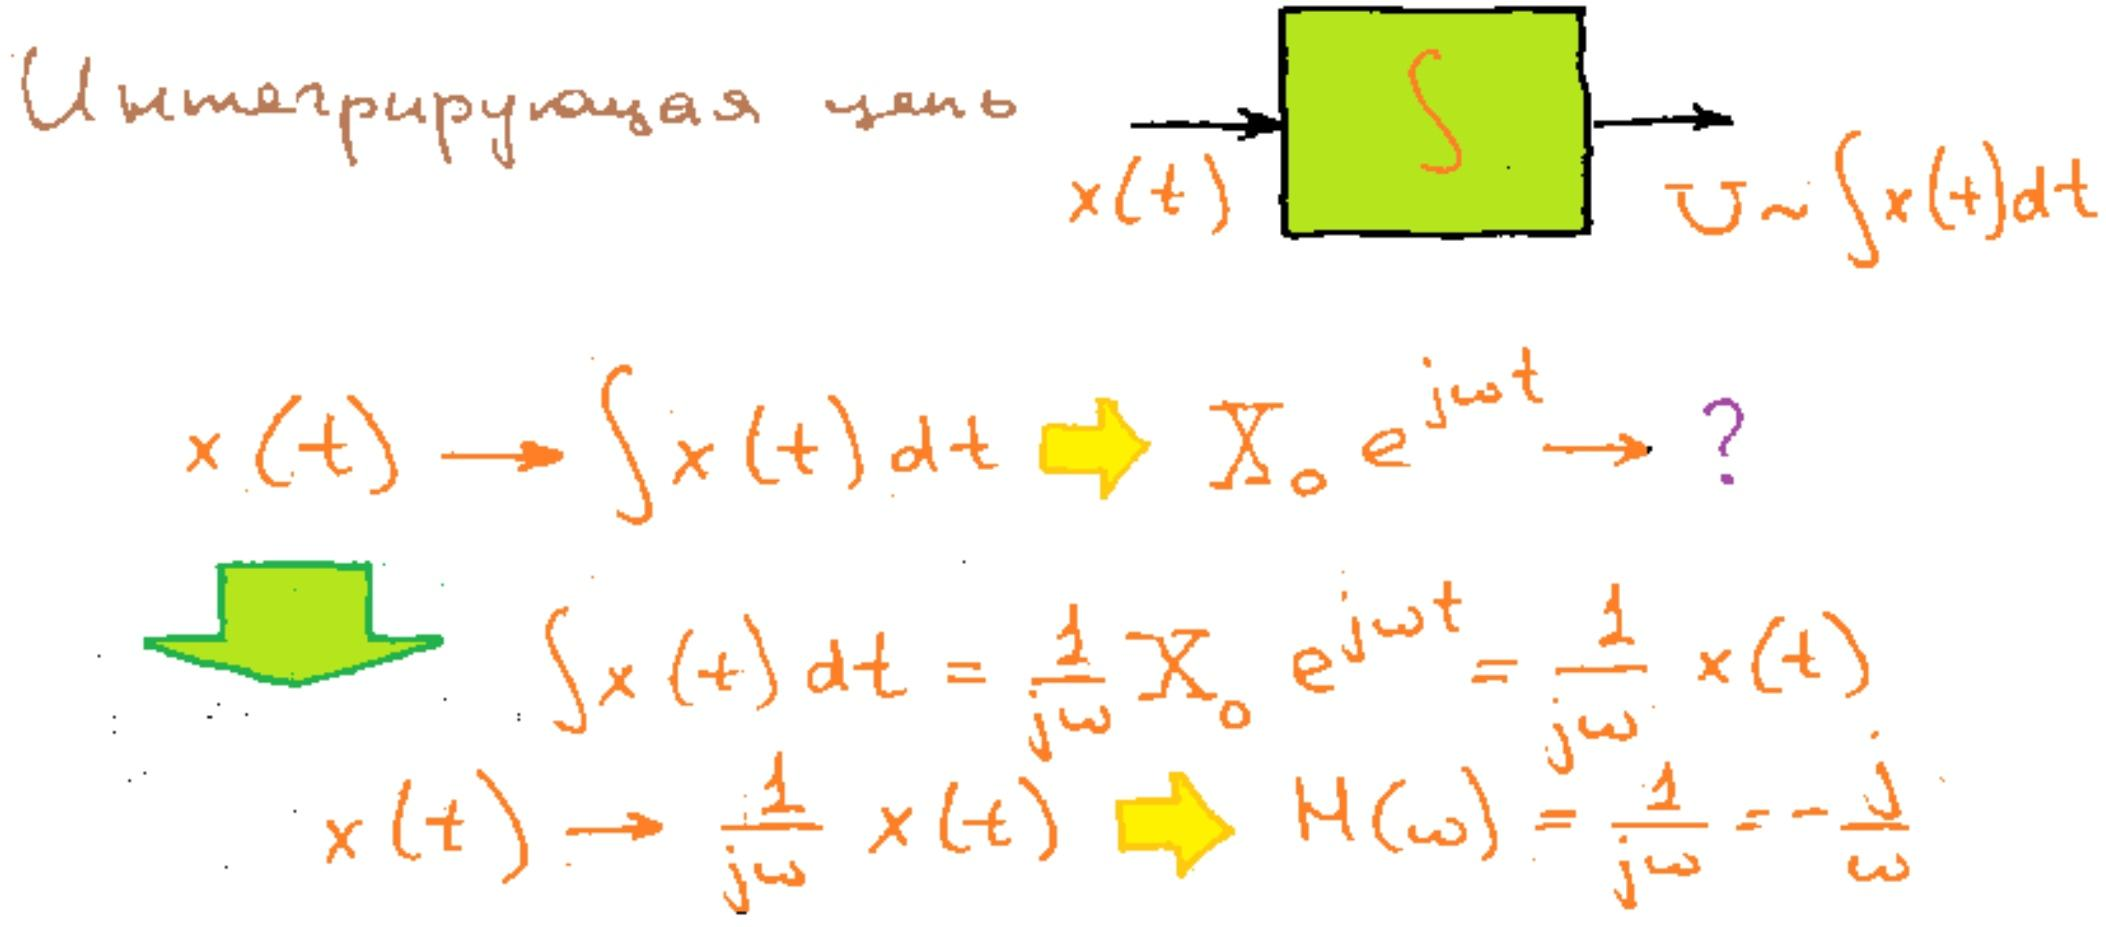 Интегрирующая цепь
∫
x(t)
U ~ ∫x(t)dt
x(t) → ∫x(t)dt ⇒ X₀ e^{jωt} → ?
∫x(t)dt = \frac{1}{jω} X₀ e^{jωt} = \frac{1}{jω} x(t)
x(t) → \frac{1}{jω} x(t) ⇒ H(ω) = \frac{1}{jω} = -\frac{j}{ω}